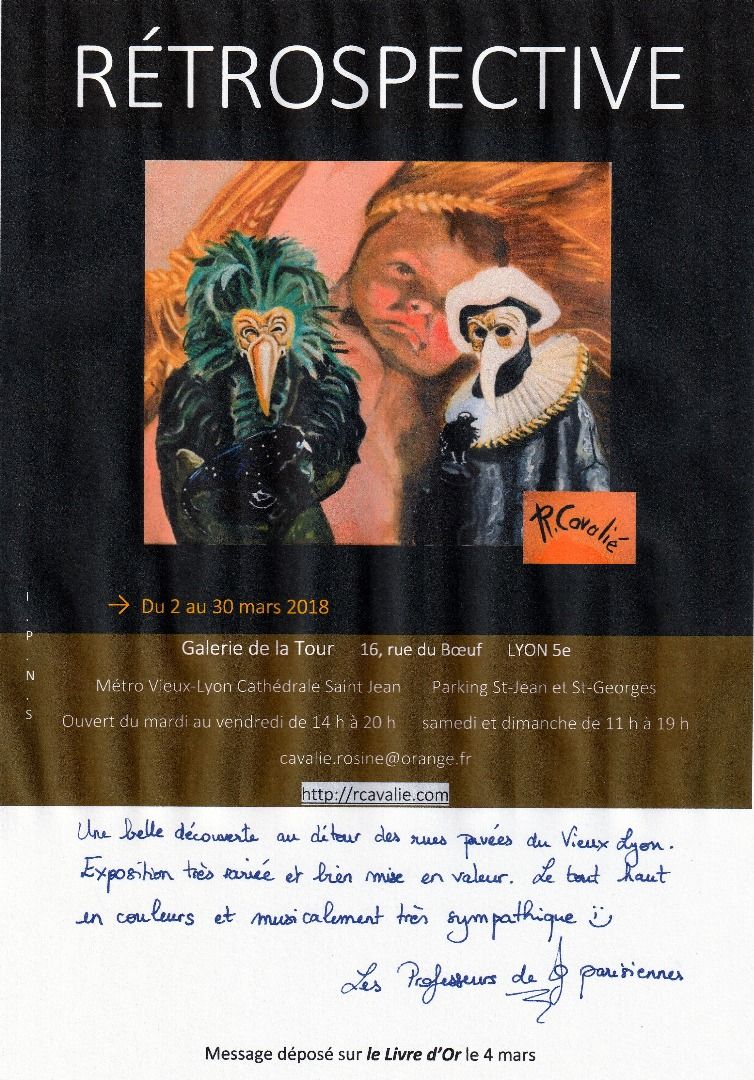 RÉTROSPECTIVE
R. Cavalié
→ Du 2 au 30 mars 2018
I.P.N.S
Galerie de la Tour 16, rue du Bœuf LYON 5e
Métro Vieux-Lyon Cathédrale Saint Jean Parking St-Jean et St-Georges
Ouvert du mardi au vendredi de 14 h à 20 h samedi et dimanche de 11 h à 19 h
cavalie.rosine@orange.fr
http://rcavalie.com
Une belle découverte au détour des rues pavées du Vieux Lyon.
Exposition très variée et bien mise en valeur. Le tout haut
en couleurs et musicalement très sympathique
Les Professeurs de parisiennes
Message déposé sur le Livre d'Or le 4 mars